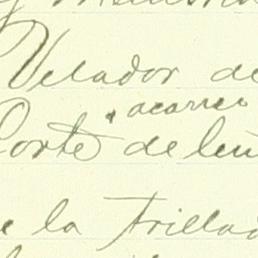 Velador de
acarreo
Corte de leñ
e la trillad